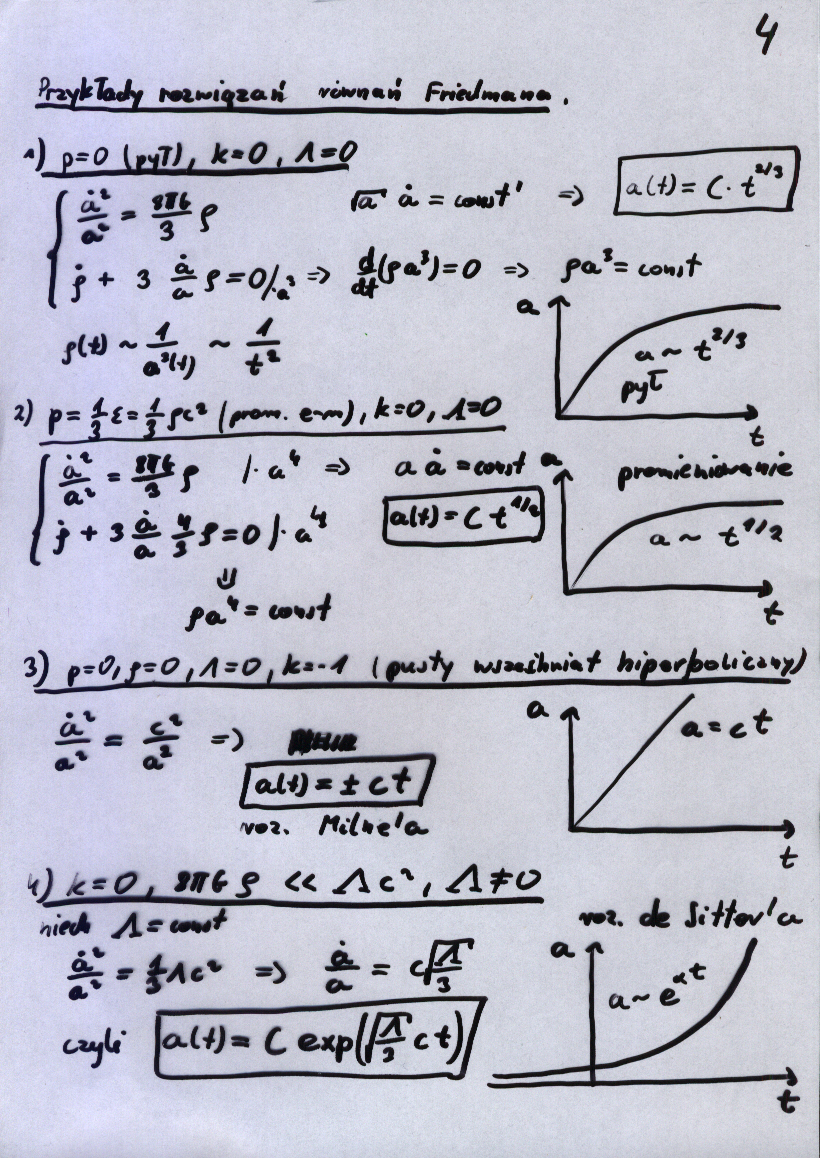 4
Przykłady rozwiązań równań Friedmana.
1) p=0 (pył), k=0, Λ=0
ȧ²/a² = 8πG/3 ρ
√a ȧ = const' => a(t) = C · t^2/3
ρ̇ + 3 ȧ/a ρ = 0 /·a³ => d/dt(ρa³)=0 => ρa³ = const
ρ(t) ~ 1/a³(t) ~ 1/t²
a
a ~ t^2/3
pył
t
2) p = 1/3 ε = 1/3 ρc² (prom. e-m), k=0, Λ=0
ȧ²/a² = 8πG/3 ρ /· a⁴ => a ȧ = const
a(t) = C t^1/2
ρ̇ + 3 ȧ/a 4/3 ρ = 0 /· a⁴
⇓
ρa⁴ = const
a
promieniowanie
a ~ t^1/2
t
3) p=0, ρ=0, Λ=0, k=-1 (pusty wszechświat hiperboliczny)
ȧ²/a² = c²/a² =>
a(t) = ± ct
roz. Milne'a
a
a = ct
t
4) k=0, 8πG ρ << Λc², Λ≠0
niech Λ = const
ȧ²/a² = 1/3 Λc² => ȧ/a = c√Λ/3
czyli a(t) = C exp(√Λ/3 ct)
roz. de Sitter'a
a
a ~ e^αt
t